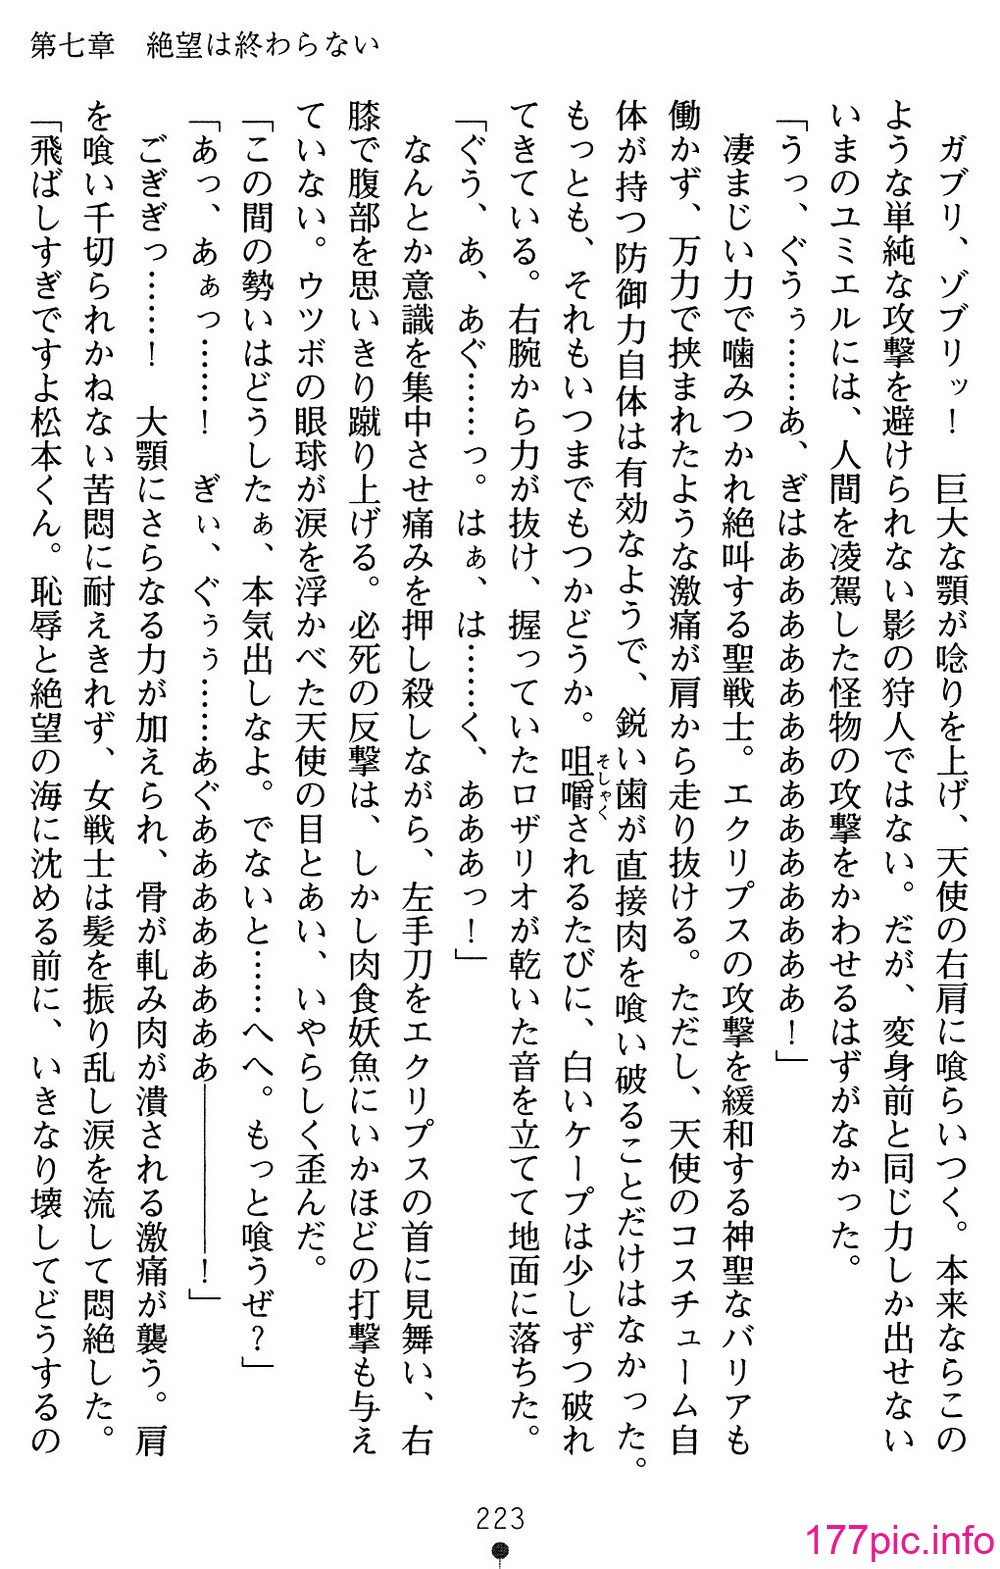 第七章　絶望は終わらない
　ガブリ、ゾブリッ！　巨大な顎が唸りを上げ、天使の右肩に喰らいつく。本来ならこの
ような単純な攻撃を避けられない影の狩人ではない。だが、変身前と同じ力しか出せない
いまのユミエルには、人間を凌駕した怪物の攻撃をかわせるはずがなかった。
「うっ、ぐうぅ……あ、ぎはあああああああああああああ！」
　凄まじい力で噛みつかれ絶叫する聖戦士。エクリプスの攻撃を緩和する神聖なバリアも
働かず、万力で挟まれたような激痛が肩から走り抜ける。ただし、天使のコスチューム自
体が持つ防御力自体は有効なようで、鋭い歯が直接肉を喰い破ることだけはなかった。
もっとも、それもいつまでもつかどうか。咀嚼そしゃくされるたびに、白いケープは少しずつ破れ
てきている。右腕から力が抜け、握っていたロザリオが乾いた音を立てて地面に落ちた。
「ぐう、あ、あぐ……っ。はぁ、は……く、あああっ！」
　なんとか意識を集中させ痛みを押し殺しながら、左手刀をエクリプスの首に見舞い、右
膝で腹部を思いきり蹴り上げる。必死の反撃は、しかし肉食妖魚にいかほどの打撃も与え
ていない。ウツボの眼球が涙を浮かべた天使の目とあい、いやらしく歪んだ。
「この間の勢いはどうしたぁ、本気出しなよ。でないと……へへ。もっと喰うぜ？」
「あっ、あぁっ……！　ぎぃ、ぐぅぅ……あぐああああああああ――――――！」
　ごぎぎっ……！　大顎にさらなる力が加えられ、骨が軋み肉が潰される激痛が襲う。肩
を喰い千切られかねない苦悶に耐えきれず、女戦士は髪を振り乱し涙を流して悶絶した。
「飛ばしすぎですよ松本くん。恥辱と絶望の海に沈める前に、いきなり壊してどうするの
223
177pic.info